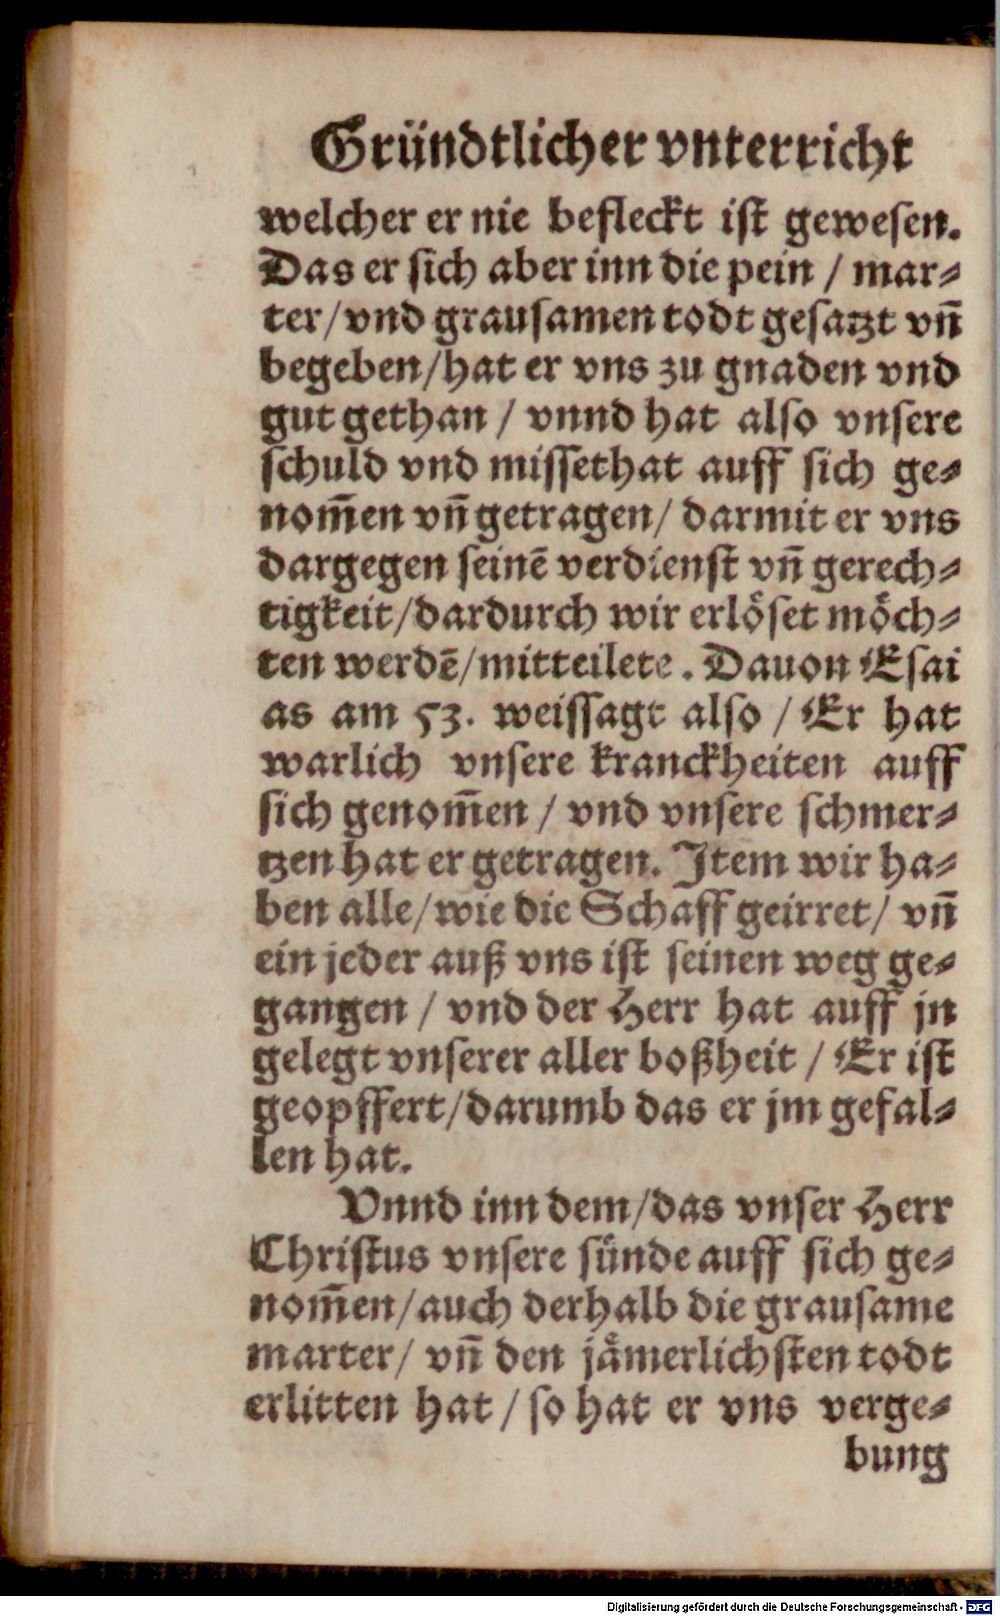 Gründtlicher vnterricht
welcher er nie befleckt ist gewesen.
Das er sich aber inn die pein / mar⸗
ter/vnd grausamen todt gesatzt vn̄
begeben/hat er vns zu gnaden vnd
gut gethan / vnnd hat also vnsere
schuld vnd missethat auff sich ge⸗
nom̄en vn̄ getragen/ darmit er vns
dargegen seinē verdienst vn̄ gerech⸗
tigkeit/dardurch wir erlöset möch⸗
ten werdē/mitteilete. Dauon Esai
as am 53. weissagt also / Er hat
warlich vnsere kranckheiten auff
sich genom̄en / vnd vnsere schmer⸗
tzen hat er getragen. Item wir ha⸗
ben alle/wie die Schaff geirret/ vn̄
ein jeder auß vns ist seinen weg ge⸗
gangen / vnd der Herr hat auff jn
gelegt vnserer aller boßheit / Er ist
geopffert/darumb das er jm gefal⸗
len hat.
Vnnd inn dem/das vnser Herr
Christus vnsere sünde auff sich ge⸗
nom̄en/auch derhalb die grausame
marter/ vn̄ den jämerlichsten todt
erlitten hat / so hat er vns verge⸗
bung
Digitalisierung gefördert durch die Deutsche Forschungsgemeinschaft - DFG